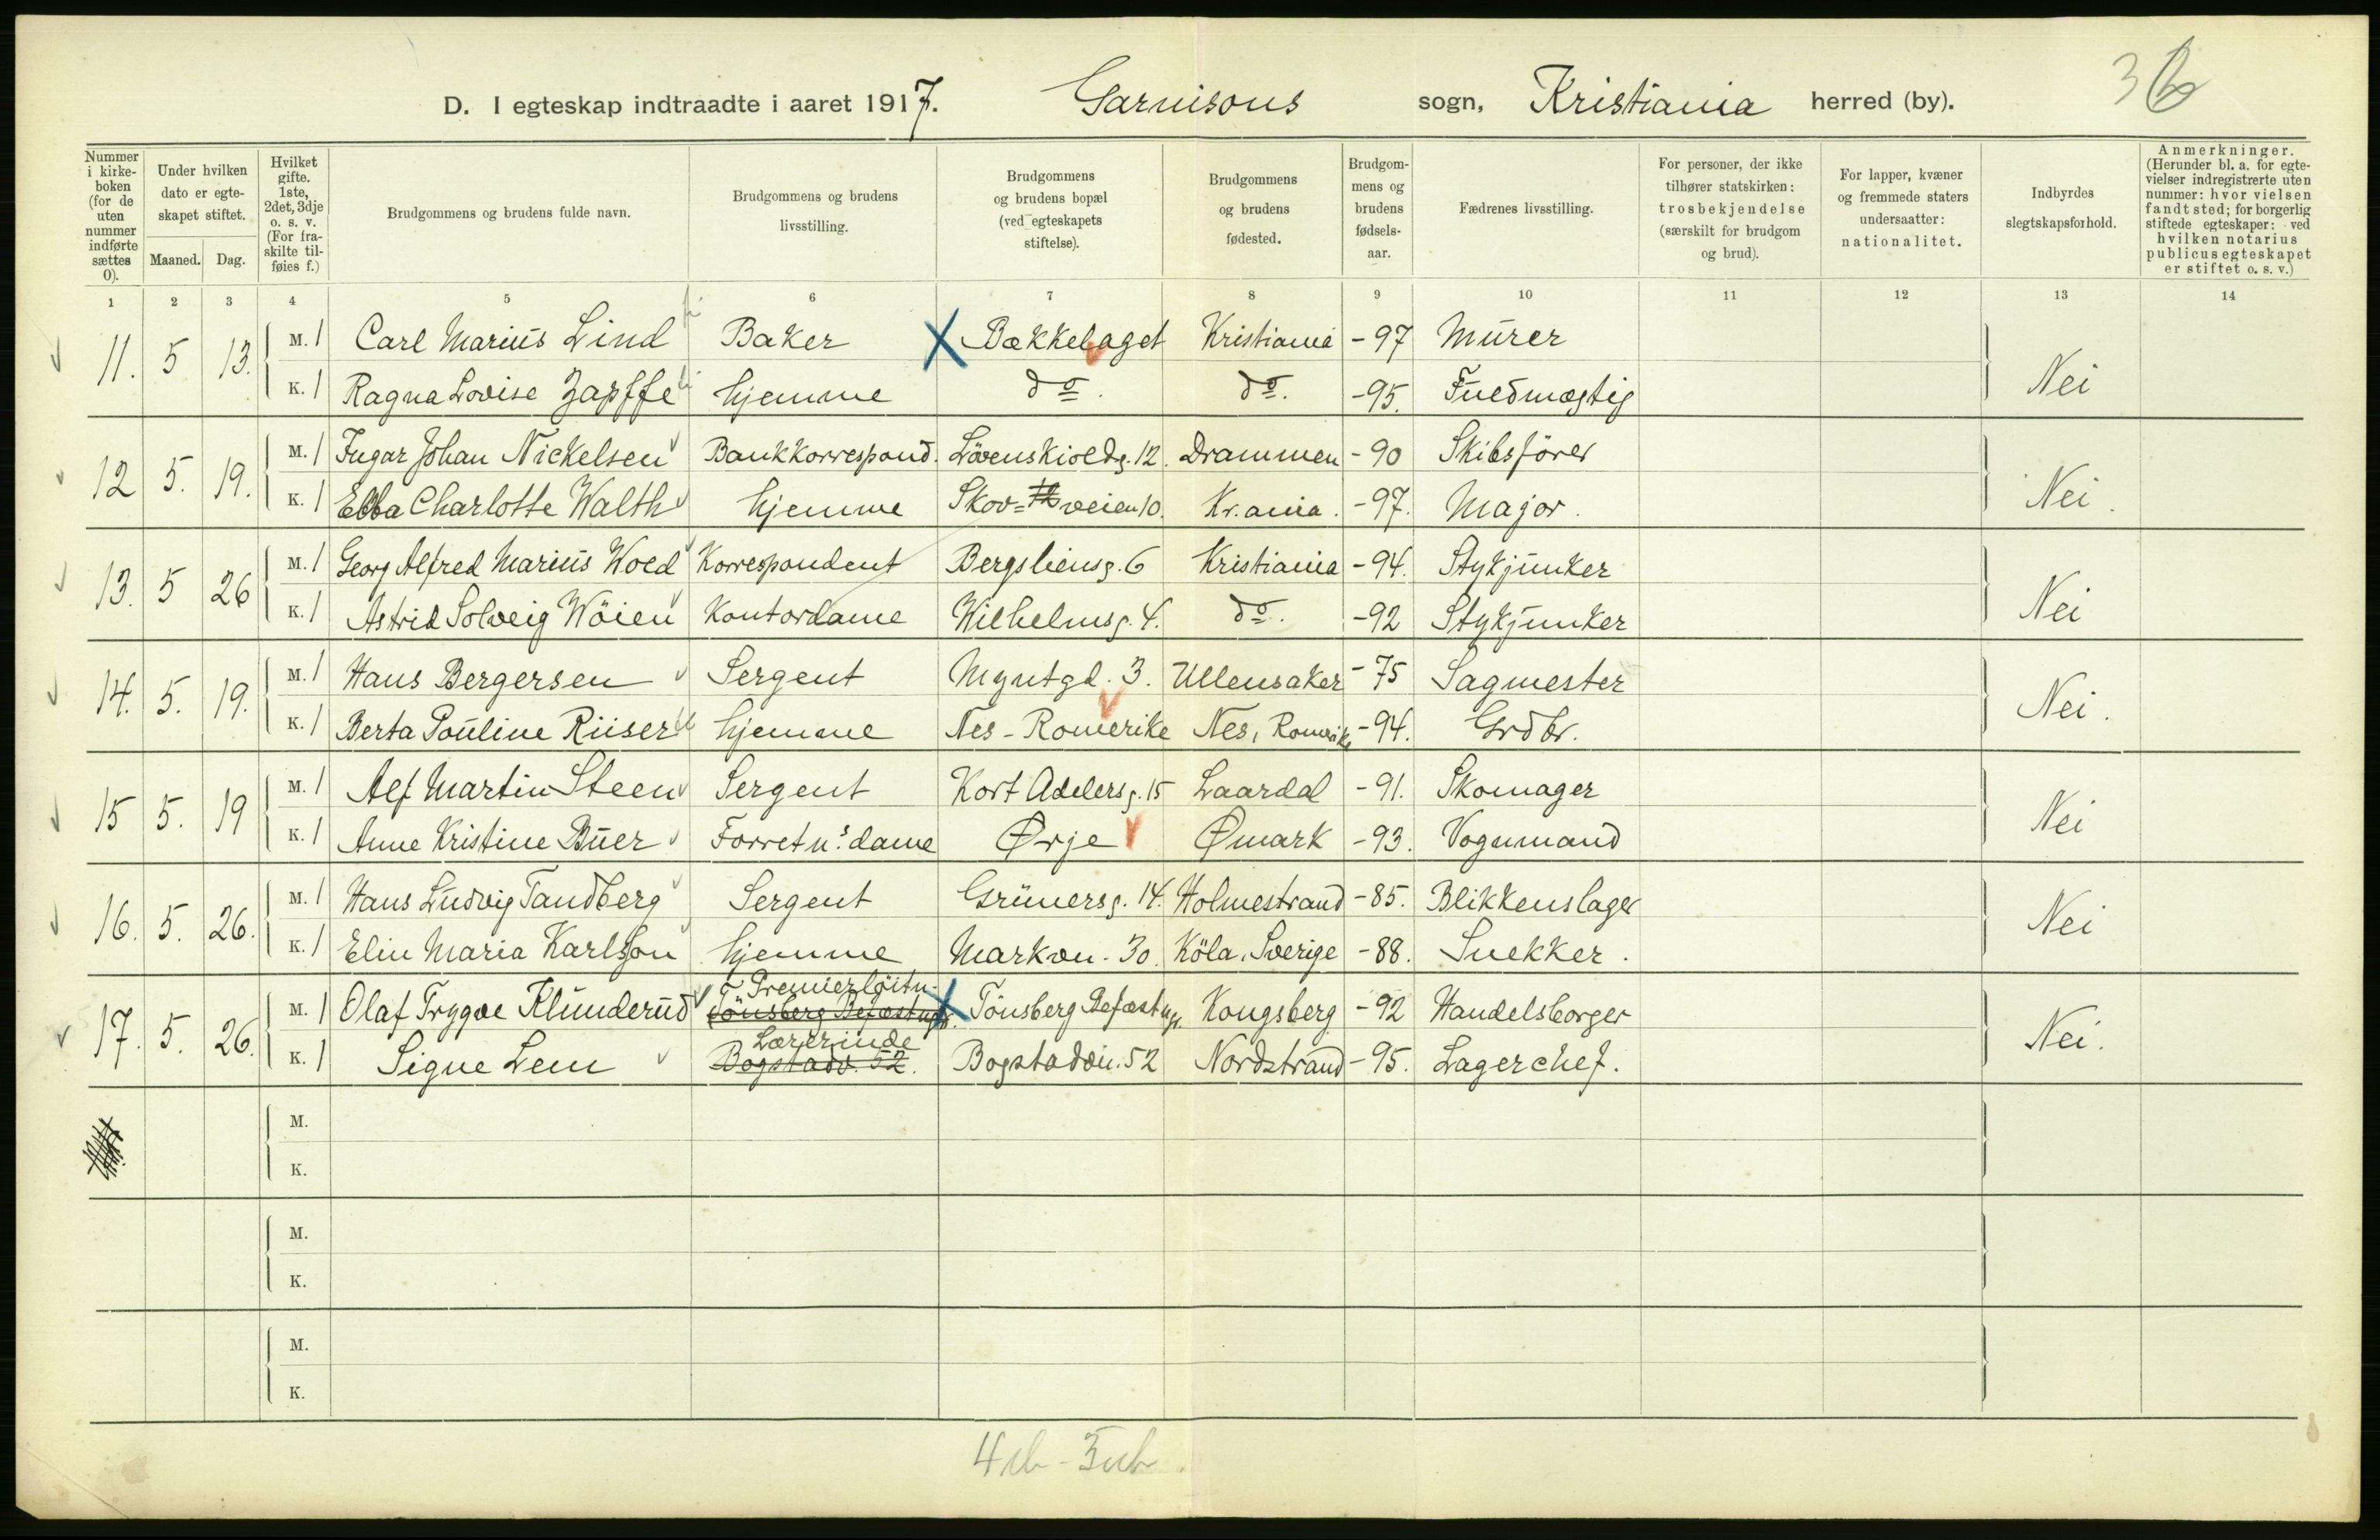 D. I egteskap indtraadte i aaret 1917. Garnisons sogn, Kristiania herred (by). 36
Nummer i kirkeboken (for de uten nummer indførte sættes 0).
Under hvilken dato er egteskapet stiftet.
Maaned. Dag.
Hvilket gifte. 1ste, 2det, 3dje o. s. v. (For fraskilte tilføies f.)
Brudgommens og brudens fulde navn.
Brudgommens og brudens livsstilling.
Brudgommens og brudens bopæl (ved egteskapets stiftelse).
Brudgommens og brudens fødested.
Brudgommens og brudens fødselsaar.
Fædrenes livsstilling.
For personer, der ikke tilhører statskirken: trosbekjendelse (særskilt for brudgom og brud).
For lapper, kvæner og fremmede staters undersaatter: nationalitet.
Indbyrdes slegtskapsforhold.
Anmerkninger. (Herunder bl. a. for egtevielser indregistrerte uten nummer: hvor vielsen fandt sted; for borgerlig stiftede egteskaper: ved hvilken notarius publicus egteskapet er stiftet o. s. v.)
1 2 3 4 5 6 7 8 9 10 11 12 13 14
11. 5 13. M. 1 Carl Marius Lind Baker Bækkelaget Kristiania -97 Murer Nei
K. 1 Ragna Lovise Zapffe hjemme do. do. -95. Fuldmægtig
12 5. 19. M. 1 Ingar Johan Nickelsen Bankkorrespond. Lövenskioldg. 12. Drammen -90 Skibsförer Nei.
K. 1 Ebba Charlotte Walth hjemme Skov=veien 10. Kr.ania. -97. Major.
13. 5 26 M. 1 Georg Alfred Marius Wold Korrespondent Bergsliensg. 6 Kristiania -94. Stykjunker Nei
K. 1 Astrid Solveig Wöien Kontordame Wilhelmsg. 4. do. -92 Stykjunker
14. 5. 19. M. 1 Hans Bergersen Sergent Myntgd. 3. Ullensaker -75 Sagmester Nei.
K. 1 Berta Pouline Riiser hjemme Nes - Romerike Nes, Romerike -94. Grdbr.
15 5. 19 M. 1 Alf Martin Steen Sergent Kort Adelersg. 15 Laardal -91. Skomager Nei
K. 1 Anne Kristine Buer Forretn.s dame Ørje Ømark -93. Vognmand
16. 5. 26. M. 1 Hans Ludvig Tandberg Sergent Grünersg. 14. Holmestrand -85. Blikkenslager Nei
K. 1 Elin Maria Karlsson hjemme Markvn. 30. Köla, Sverige -88. Snekker.
17. 5. 26. M. 1 Olaf Trygve Klunderud Premierlöitn. Tönsberg Befæstngr. Tönsberg Befæstngr. Kongsberg -92 Handelsborger Nei.
K. 1 Signe Lem Lærerinde Bogstadv. 52. Bogstadvn. 52 Nordstrand -95. Lagerchef.
M.
K.
M.
K.
M.
K.